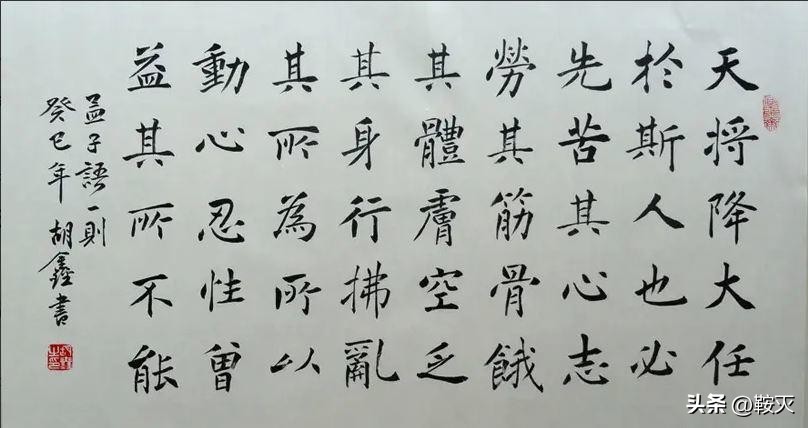 天將降大任
於斯人也必
先苦其心志
勞其筋骨餓
其體膚空乏
其身行拂亂
其所為所以
動心忍性曾
益其所不能
孟子語一則
癸巳年胡鑫書
头条 @鞍灭